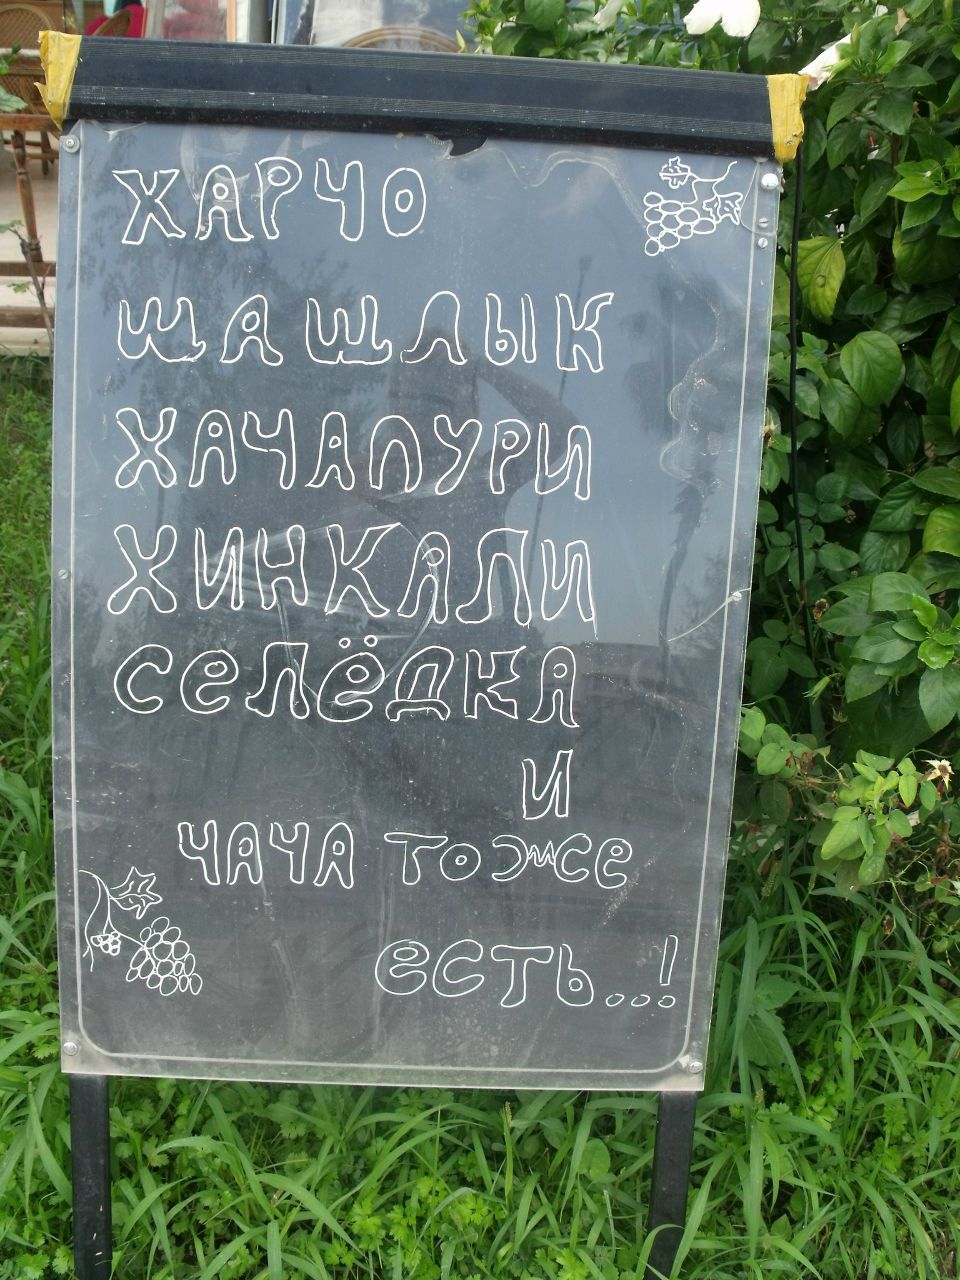 ХАРЧО
ШАШЛЫК
ХАЧАПУРИ
ХИНКАЛИ
СЕЛЁДКА
И
ЧАЧА ТОЖЕ
ЕСТЬ...!